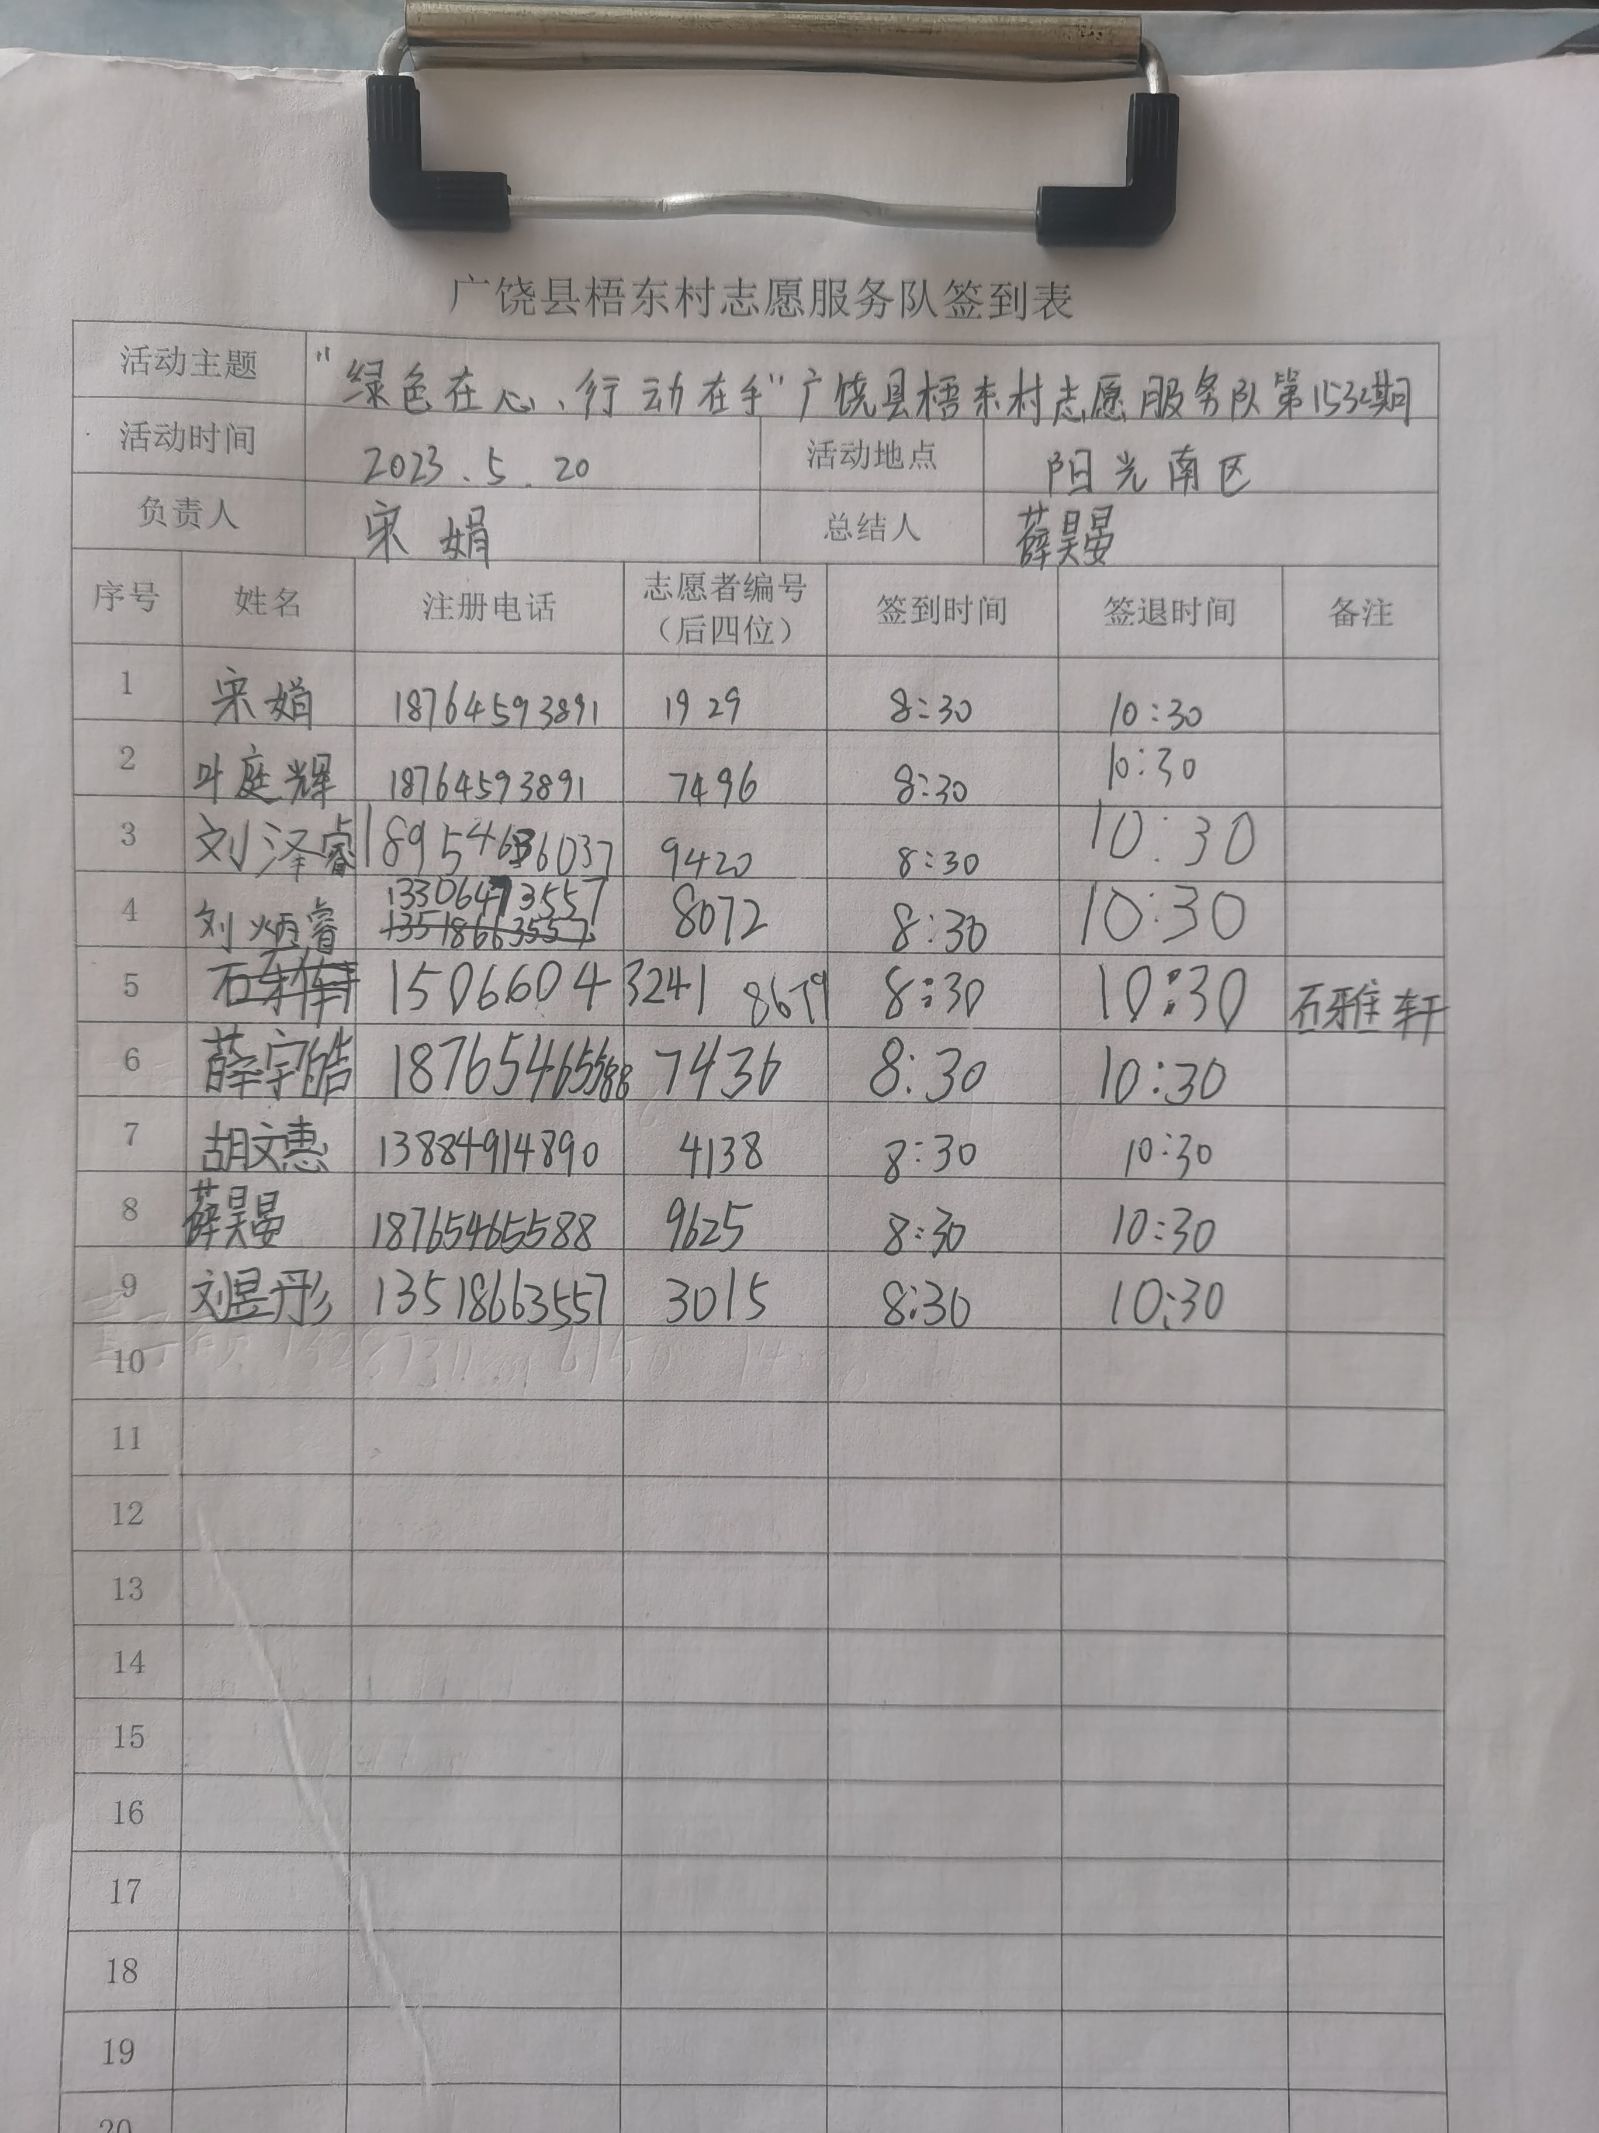 广饶县梧东村志愿服务队签到表
活动主题 "绿色在心、行动在手"广饶县梧东村志愿服务队第1532期
活动时间 2023.5.20 活动地点 阳光南区
负责人 宋娟 总结人 薛昊晏
序号 姓名 注册电话 志愿者编号（后四位） 签到时间 签退时间 备注
1 宋娟 18764593891 1929 8:30 10:30
2 叶庭辉 18764593891 7496 8:30 10:30
3 刘泽睿 18954636037 9420 8:30 10:30
4 刘炳睿 13306473557 13518663557 8072 8:30 10:30
5 石 15066043241 8679 8:30 10:30 石雅轩
6 薛宇皓 18765465588 7436 8:30 10:30
7 胡文惠 13884914890 4138 8:30 10:30
8 薛昊晏 18765465588 9625 8:30 10:30
9 刘昱彤 13518663557 3015 8:30 10:30
10
11
12
13
14
15
16
17
18
19
20